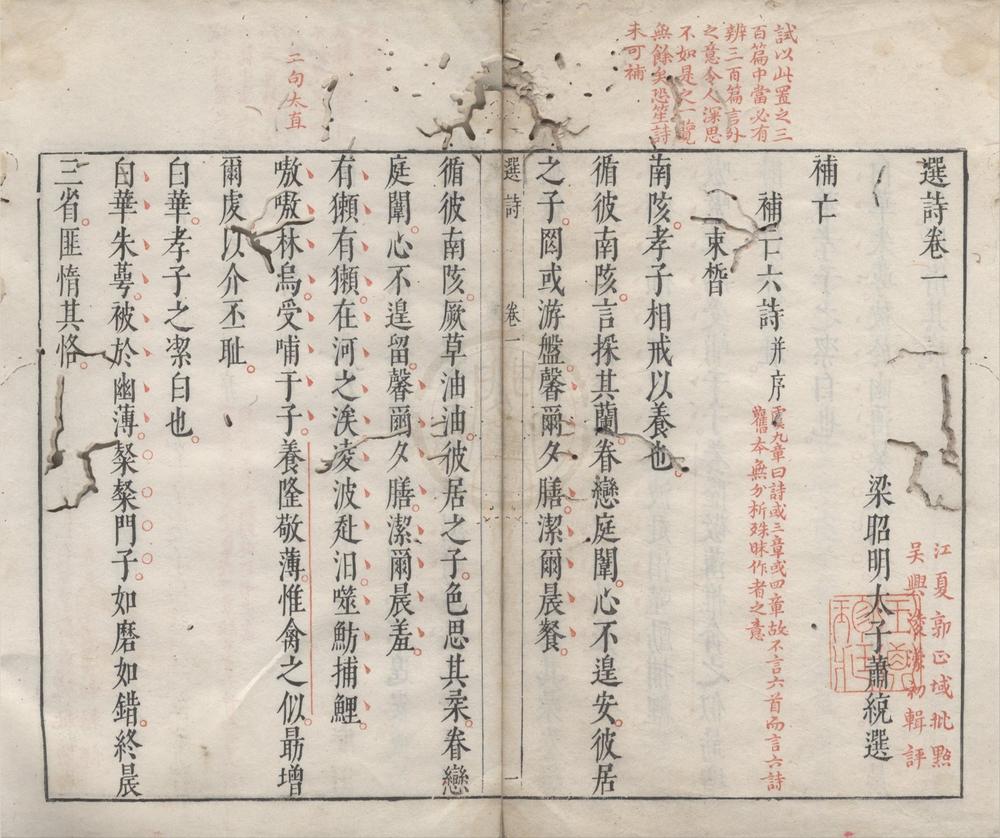 試以此置之三
百篇中當必有
辨三百篇言外
之意令人深思
不如是之一覽
無餘矣恐笙詩
未可補
二句太直
選詩卷一
梁昭明太子蕭統選
江夏郭正域批點
吳興凌濛初輯評
補亡
補亡六詩并序
虞九章曰詩或三章或四章故不言六首而言六詩
舊本無分析殊昧作者之意
束晳
南陔孝子相戒以養也
循彼南陔言採其蘭眷戀庭闈心不遑安彼居
之子罔或游盤馨爾夕膳潔爾晨餐
選詩 卷一 一
循彼南陔厥草油油彼居之子色思其柔眷戀
庭闈心不遑留馨爾夕膳潔爾晨羞
有獺有獺在河之涘凌波赴汨噬魴捕鯉
嗷嗷林烏受哺于子養隆敬薄惟禽之似勗增
爾虔以介丕祉
白華孝子之潔白也
白華朱萼被於幽薄粲粲門子如磨如錯終晨
三省匪惰其恪